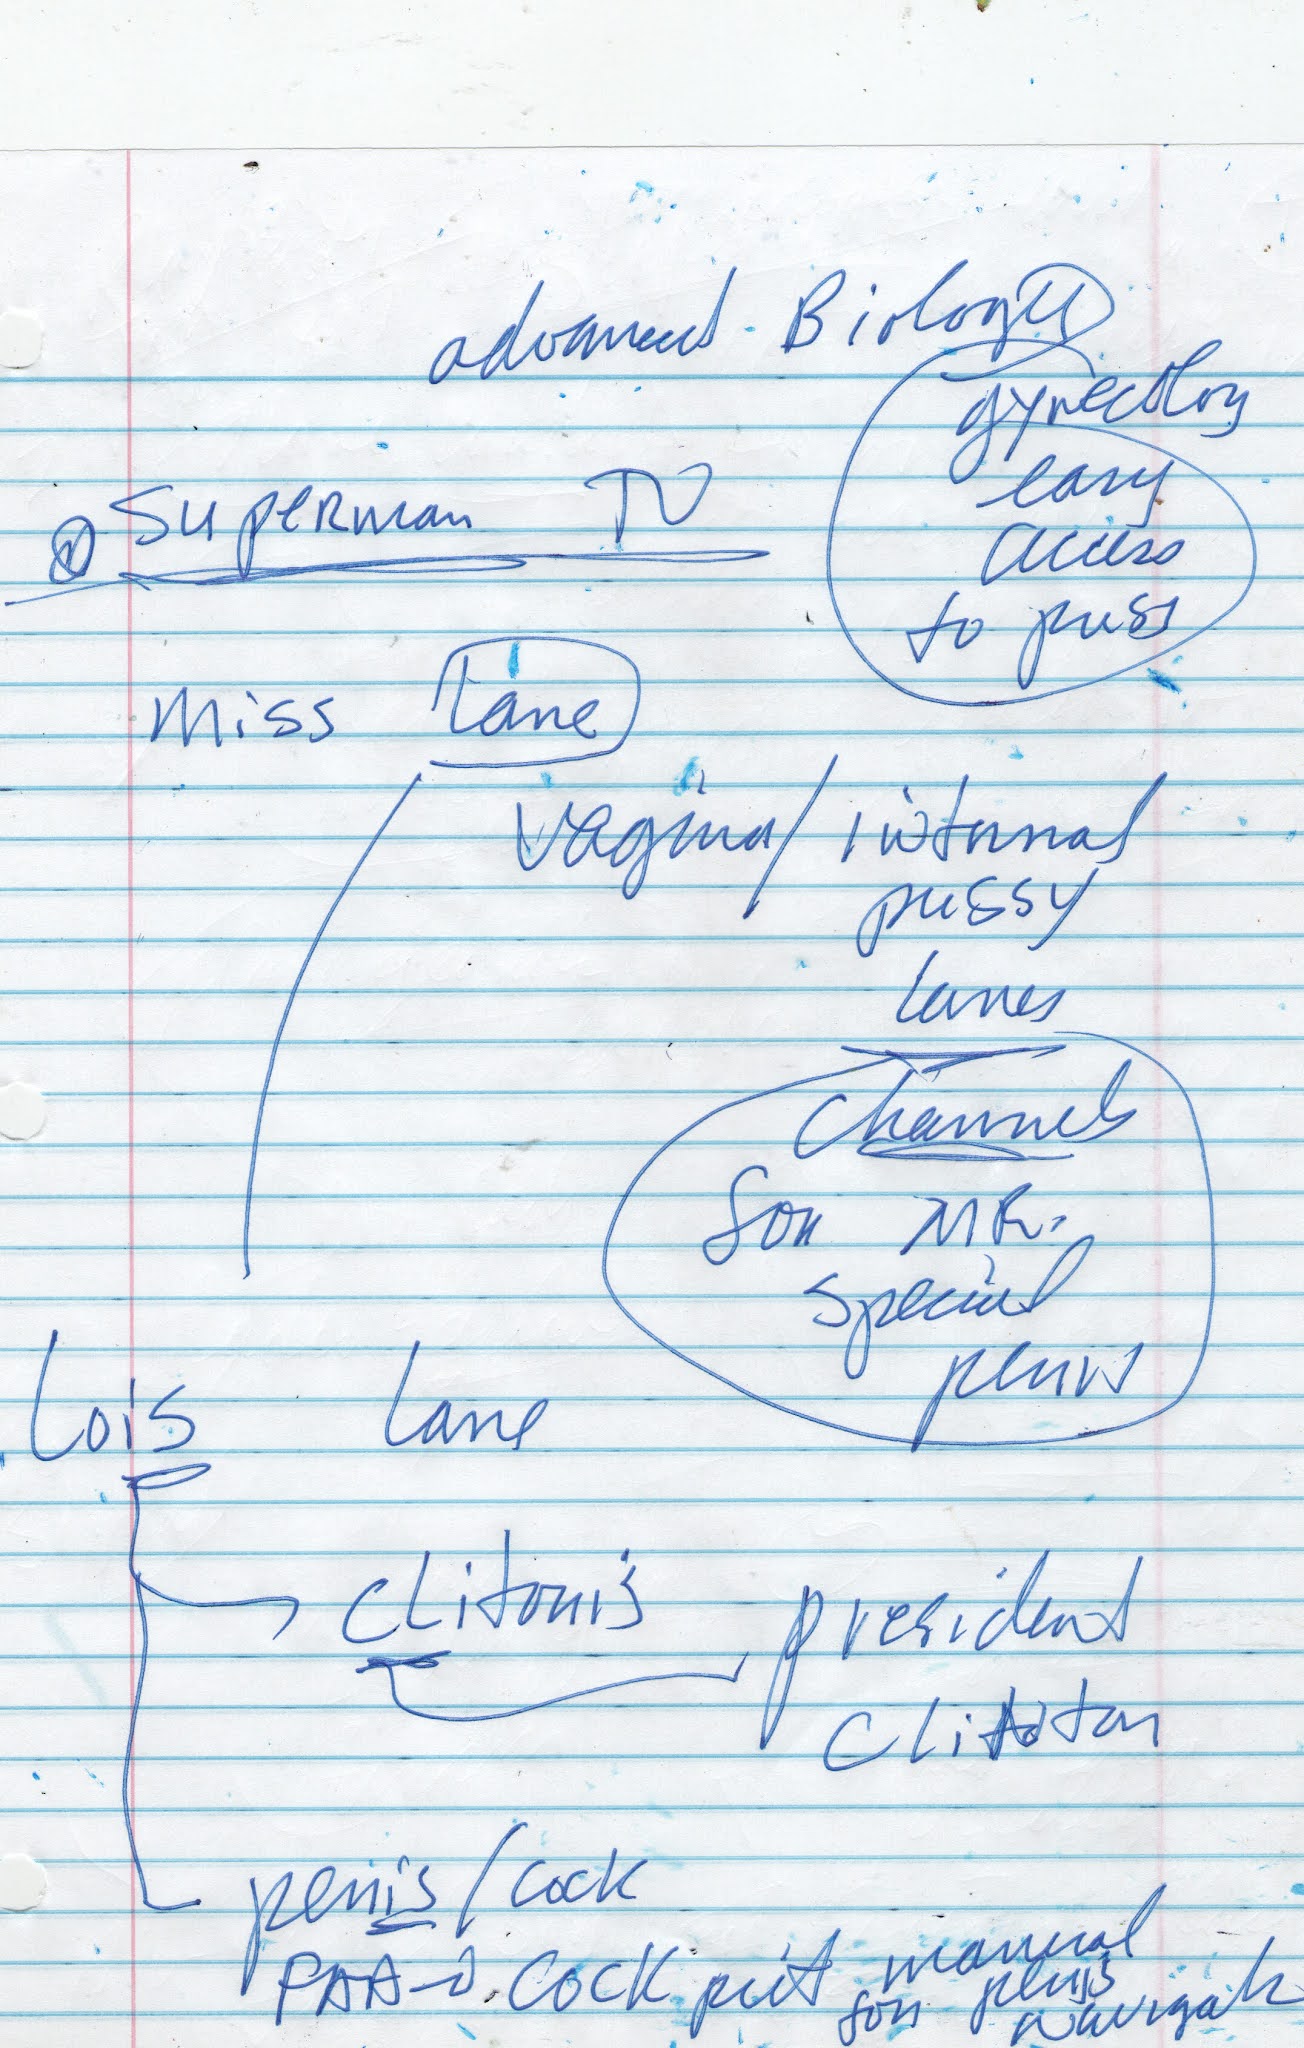 advanced Biology
gynecology
easy
access
to puss
Superman TV
Miss Lane
vagina/internal
pussy
lanes
channels
for MR.
special
penis
Lois Lane
CLitoris
president
CLinton
penis/cock
FAA → Cock pit manual
for penis
navigat